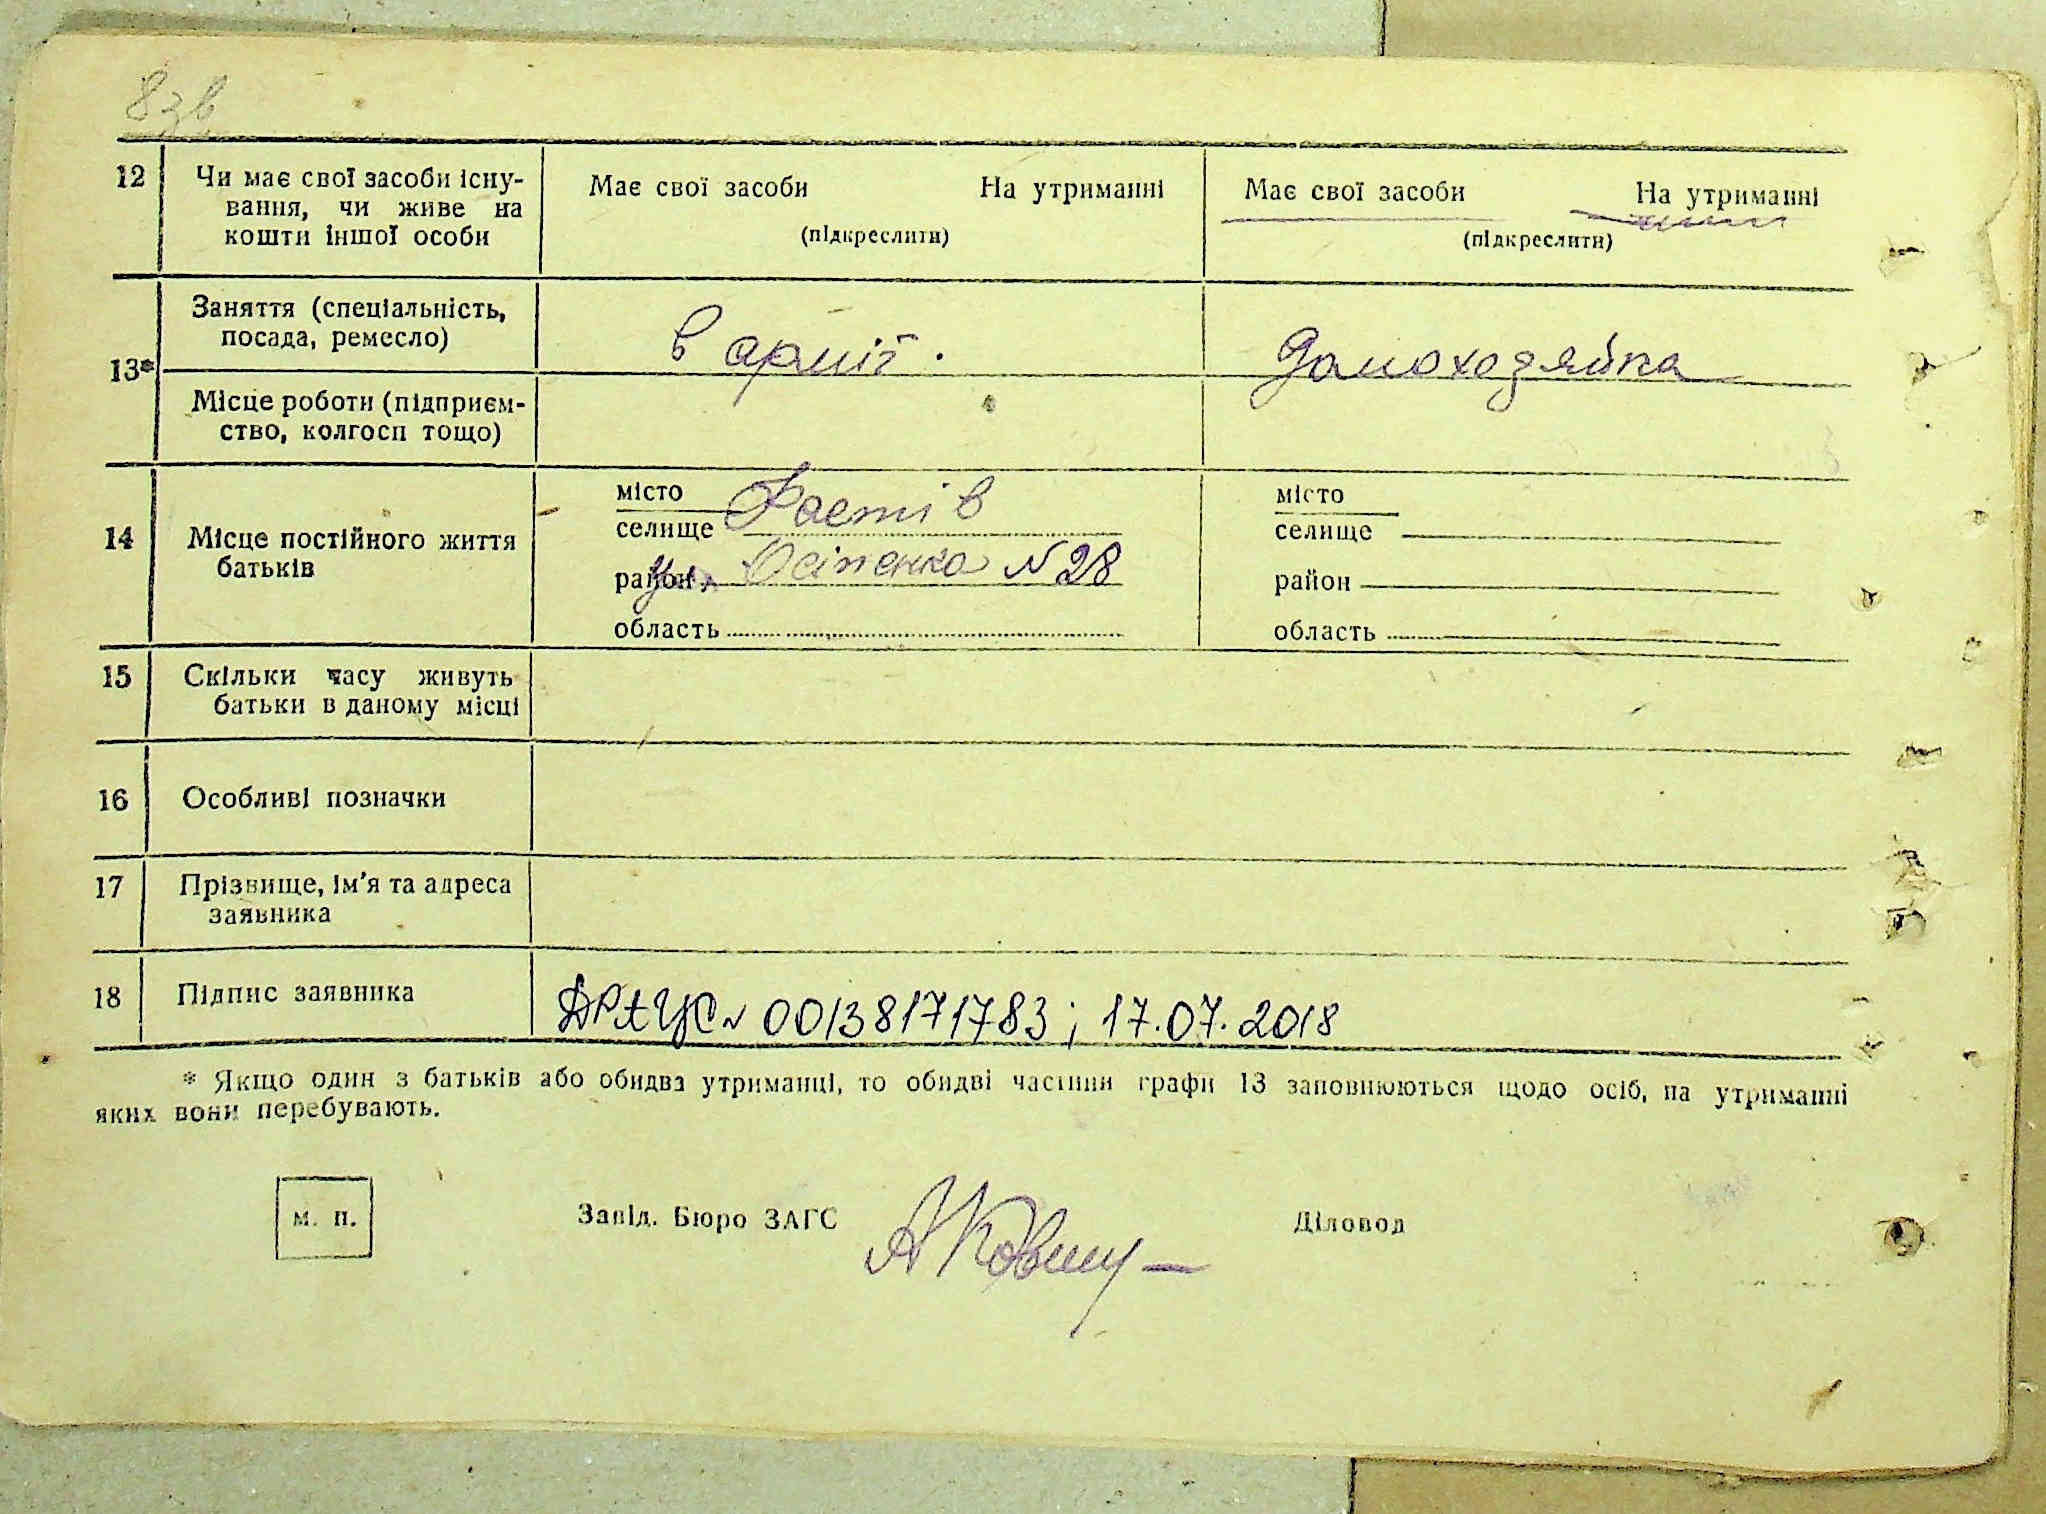 8зв
12 Чи має свої засоби існу- Має свої засоби На утриманні Має свої засоби На утриманні
вання, чи живе на
кошти іншої особи (підкреслити) (підкреслити)
Заняття (спеціальність,
посада, ремесло) в армії. Домохозяйка
13*
Місце роботи (підприєм-
ство, колгосп тощо)
місто Фастів місто
селище селище
14 Місце постійного життя
батьків
район Осіпенко № 28 район
область область
15 Скільки часу живуть
батьки в даному місці
16 Особливі позначки
17 Прізвище, ім'я та адреса
заявника
18 Підпис заявника ДРАЦС № 00138171783; 17.07.2018
* Якщо один з батьків або обидва утриманці, то обидві частини графи 13 заповнюються щодо осіб, на утриманні
яких вони перебувають.
м. п. Завід. Бюро ЗАГС Діловод